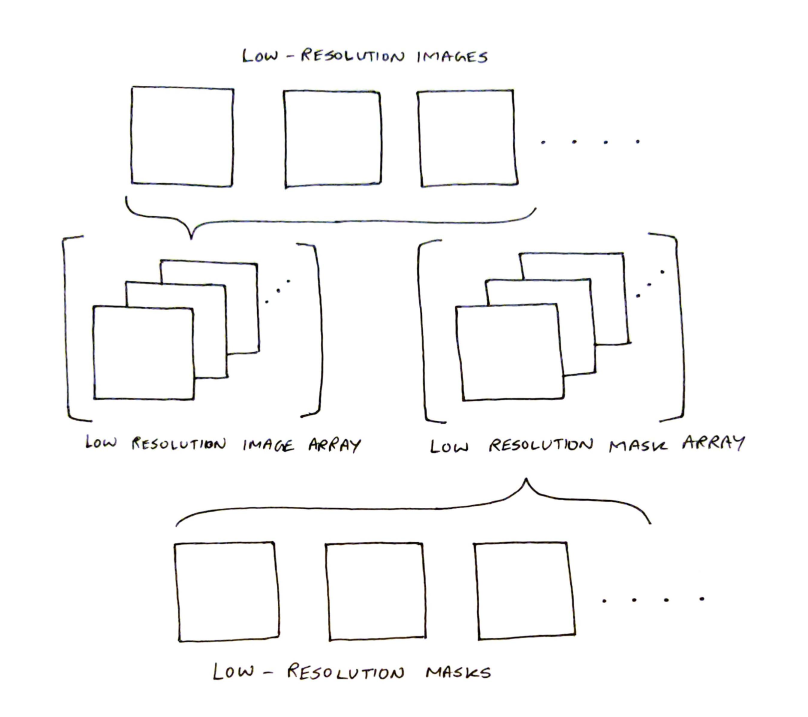 LOW-RESOLUTION IMAGES
LOW RESOLUTION IMAGE ARRAY
LOW RESOLUTION MASK ARRAY
LOW-RESOLUTION MASKS